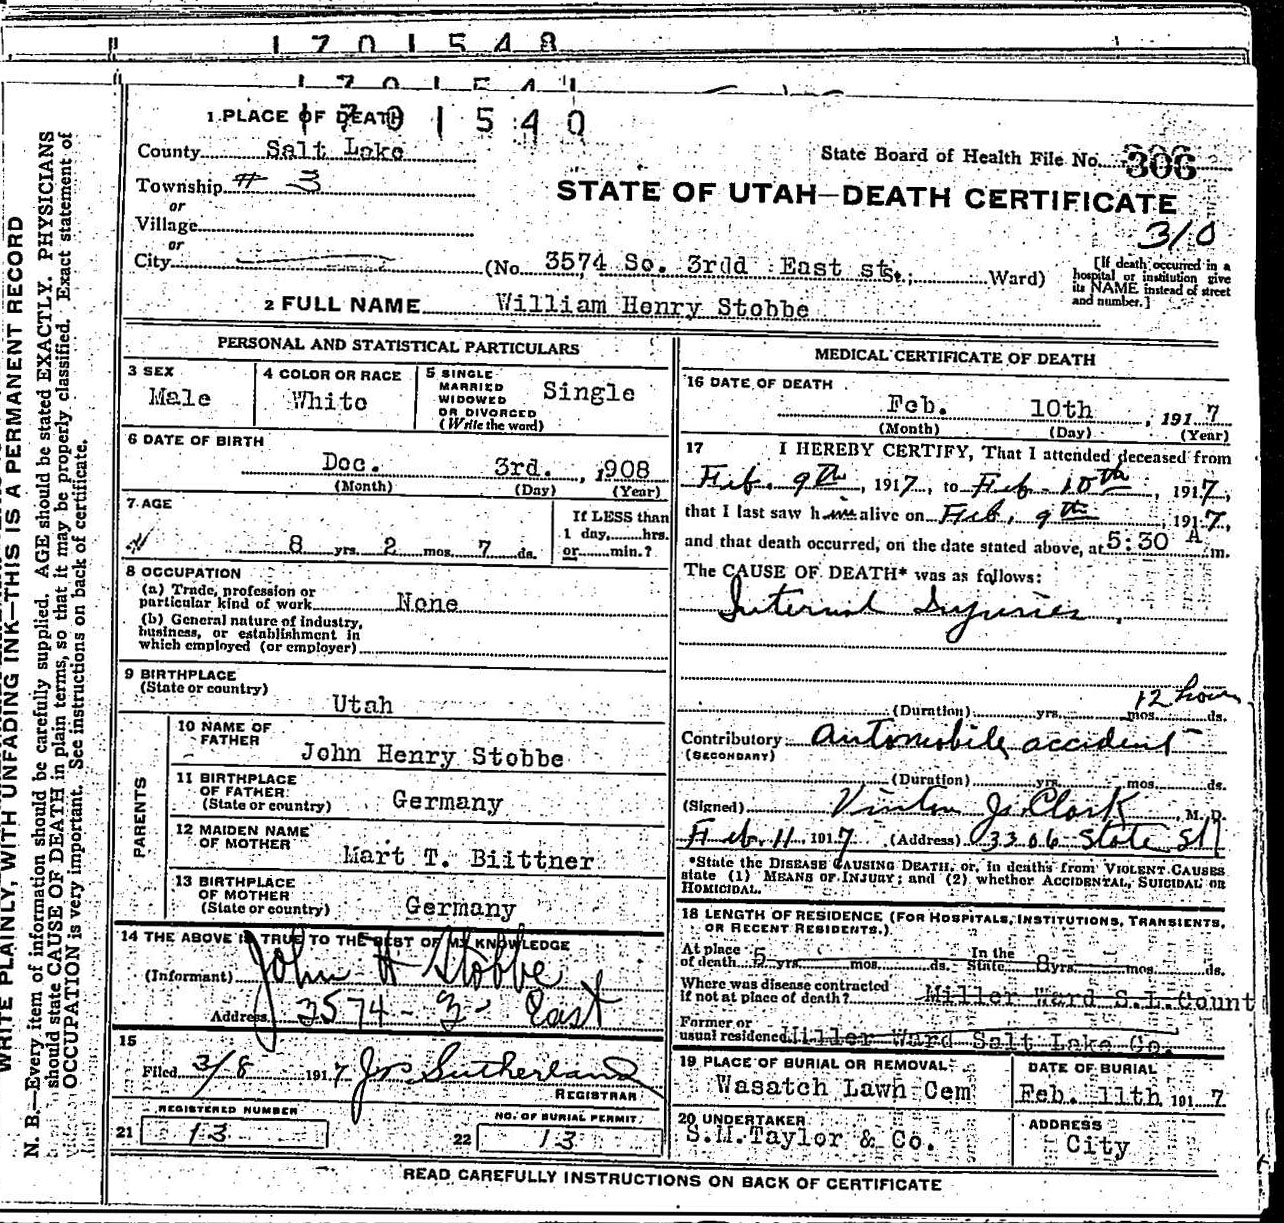 1701548
1701541
1701540
WRITE PLAINLY, WITH UNFADING INK—THIS IS A PERMANENT RECORD
N. B.—Every item of information should be carefully supplied. AGE should be stated EXACTLY. PHYSICIANS
should state CAUSE OF DEATH in plain terms, so that it may be properly classified. Exact statement of
OCCUPATION is very important. See instructions on back of certificate.
1 PLACE OF DEATH
County Salt Lake
State Board of Health File No. 306
Township # 3
STATE OF UTAH—DEATH CERTIFICATE
or
Village
310
or
City (No. 3574 So. 3rdd East st.; Ward)
[If death occurred in a
hospital or institution give
its NAME instead of street
and number.]
2 FULL NAME William Henry Stobbe
PERSONAL AND STATISTICAL PARTICULARS
3 SEX
Male
4 COLOR OR RACE
White
5 SINGLE
MARRIED
WIDOWED
OR DIVORCED
(Write the word)
Single
6 DATE OF BIRTH
Dec. 3rd. , 1908
(Month) (Day) (Year)
7 AGE
8 yrs. 2 mos. 7 ds.
If LESS than
1 day, hrs.
or min.?
8 OCCUPATION
(a) Trade, profession or
particular kind of work None
(b) General nature of industry,
business, or establishment in
which employed (or employer)
9 BIRTHPLACE
(State or country)
Utah
PARENTS
10 NAME OF
FATHER
John Henry Stobbe
11 BIRTHPLACE
OF FATHER
(State or country) Germany
12 MAIDEN NAME
OF MOTHER
Mart T. Biittner
13 BIRTHPLACE
OF MOTHER
(State or country) Germany
14 THE ABOVE IS TRUE TO THE BEST OF MY KNOWLEDGE
(Informant) John H Stobbe
Address 3574 - 3 - East
15
Filed 3/8 1917 Jos Sutherland
REGISTRAR
REGISTERED NUMBER
21 13
NO. OF BURIAL PERMIT
22 13
MEDICAL CERTIFICATE OF DEATH
16 DATE OF DEATH
Feb. 10th , 1917
(Month) (Day) (Year)
17 I HEREBY CERTIFY, That I attended deceased from
Feb. 9th, 1917, to Feb. 10th, 1917,
that I last saw him alive on Feb. 9th, 1917,
and that death occurred, on the date stated above, at 5:30 A m.
The CAUSE OF DEATH* was as follows:
Internal Injuries.
12 hours
(Duration) yrs. mos. ds.
Contributory Automobile accident
(SECONDARY)
(Duration) yrs. mos. ds.
(Signed) Vinton J. Clark, M. D.
Feb. 11 1917 (Address) 3306 State St
*State the DISEASE CAUSING DEATH, or, in deaths from VIOLENT CAUSES
state (1) MEANS OF INJURY; and (2) whether ACCIDENTAL, SUICIDAL OR
HOMICIDAL.
18 LENGTH OF RESIDENCE (FOR HOSPITALS, INSTITUTIONS, TRANSIENTS,
OR RECENT RESIDENTS.)
At place
of death 5 yrs. mos. ds.
In the
State 8 yrs. mos. ds.
Where was disease contracted
if not at place of death? Miller Ward S.L. Count
Former or
usual residence Miller Ward Salt Lake Co.
19 PLACE OF BURIAL OR REMOVAL
Wasatch Lawn Cem
DATE OF BURIAL
Feb. 11th 1917
20 UNDERTAKER
S.M.Taylor & Co.
ADDRESS
City
READ CAREFULLY INSTRUCTIONS ON BACK OF CERTIFICATE